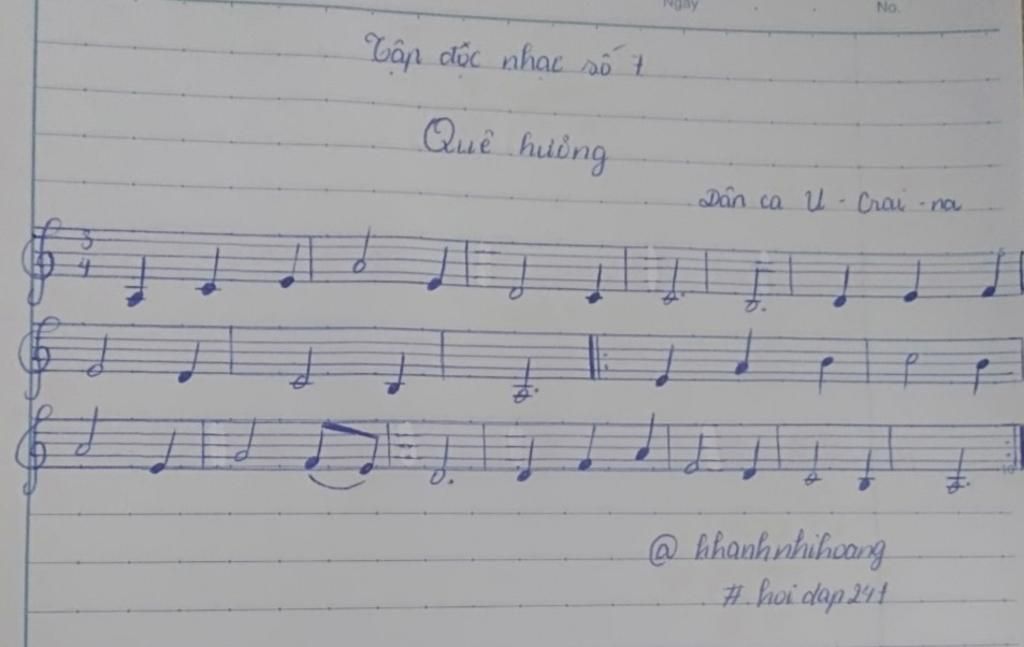 Ngày No.
Tập đọc nhạc số 7
Quê hương
Dân ca U - Crai - na
3
4
@ khanhnhihoang
#. hoidap247